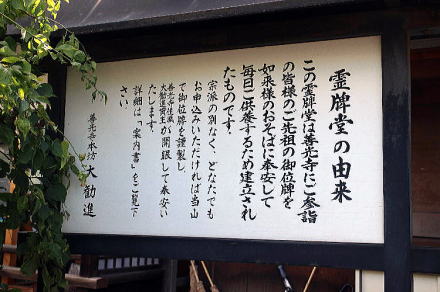 霊牌堂の由来
この霊牌堂は善光寺にご参詣
の皆様のご先祖の御位牌を
如来様のおそばに奉安して
毎日ご供養するため建立され
たものです。
宗派の別なく、どなたでも
お申込みいただければ当山
で御位牌を謹製し、
善光寺住職
大勧進貫主が開眼して奉安い
たします。
詳細は、「案内書」をご覧下
さい。
善光寺本坊 大勧進